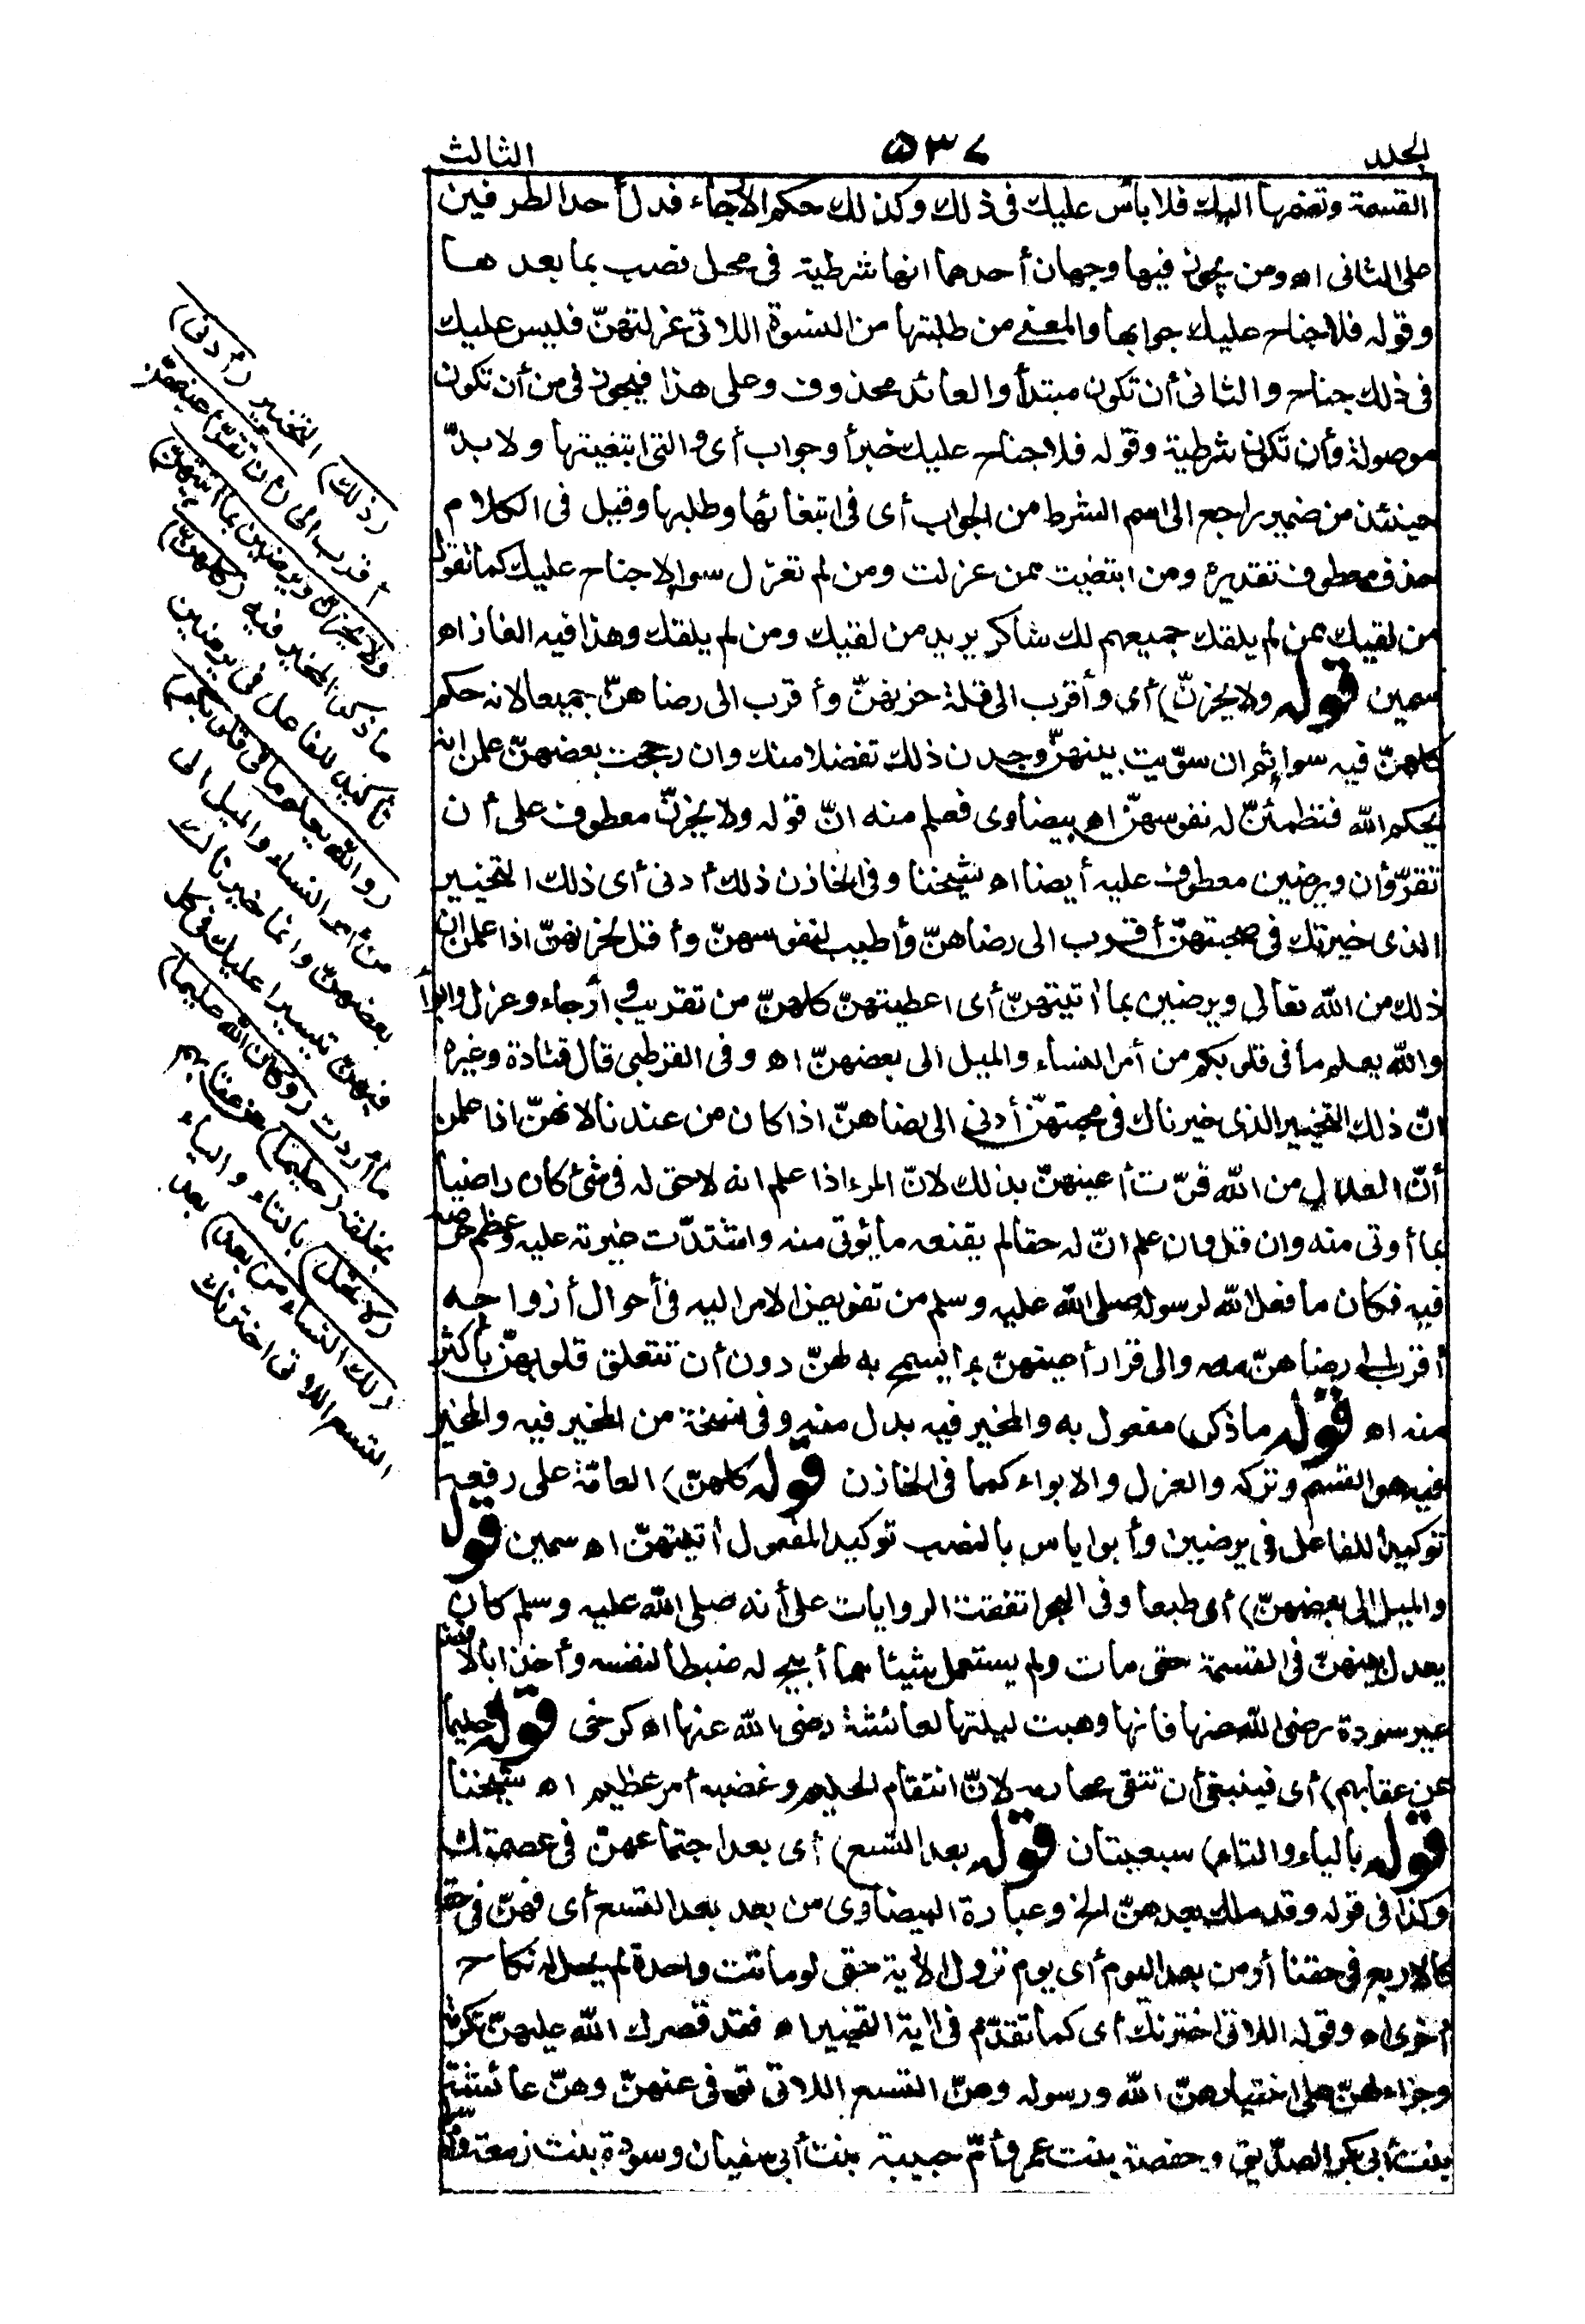 الجلد
٥٣٧
الثالث
القسمة وتضمها اليك فلا بأس عليك فى ذلك وكذلك حكم الارجاء فدل أحد الطرفين
على الثانى اه ومن يجوز فيها وجهان أحدهما انها شرطية فى محل نصب بما بعدها
وقوله فلا جناح عليك جوابها والمعنى من طلبتها من النسوة اللاتى عزلتهنّ فليس عليك
فى ذلك جناح والثانى أن تكون مبتدأ والعائد محذوف وعلى هذا فيجوز فى من أن تكون
موصولة وأن تكون شرطية وقوله فلا جناح عليك خبر أو جواب أى والتى ابتغيتها ولا بدّ
حينئذ من ضمير راجع الى اسم الشرط من الجواب أى فى ابتغائها وطلبها وقيل فى الكلام
حذف معطوف تقديره ومن ابتغيت ممن عزلت ومن لم تعزل سواء لا جناح عليك كما تقول
من لقيك ممن لم يلقك جميعهم لك شاكر يريد من لقيك ومن لم يلقك وهذا فيه الغاز اه
سمين قوله ولا يحزنّ) أى وأقرب الى قلة حزنهنّ وأقرب الى رضاهنّ جميعا لانه حكم
كلهنّ فيه سواء ثم ان سوّيت بينهنّ وجدن ذلك تفضلا منك وان رجحت بعضهنّ علمن انه
بحكم الله فتطمئنّ له نفوسهنّ اه بيضاوى فعلم منه انّ قوله ولا يحزنّ معطوف على أن
تقرّ وأن ويرضين معطوف عليه أيضا اه شيخنا وفى الخازن ذلك أدنى أى ذلك التخيير
الذى خيرتك فى صحبتهنّ أقرب الى رضاهنّ وأطيب لنفوسهنّ وأقل لحزنهنّ اذا علمن ان
ذلك من الله تعالى ويرضين بما آتيتهنّ أى اعطيتهنّ كلهنّ من تقريب وأرجاء وعزل وايواء
والله يعلم ما فى قلوبكم من أمر النساء والميل الى بعضهنّ اه وفى القرطبى قال قتادة وغيره
انّ ذلك التخيير الذى خيرناك فى صحبتهنّ أدنى الى رضاهنّ اذا كان من عندنا لانهنّ اذا علمن
أنّ الفعل من الله قرّت أعينهنّ بذلك لانّ المرء اذا علم انه لا حق له فى شئ كان راضيا
بما أوتى منه وان قل وان علم انّ له حقا لم يقنعه ما يؤتى منه واشتدّت غيرته عليه وعظم حرصه
فيه فكان ما فعل الله لرسوله صلى الله عليه وسلم من تفويض الامر اليه فى أحوال أزواجه
أقرب الى رضاهنّ معه والى قرار أعينهنّ بما يسمح به لهنّ دون أن تتعلق قلوبهنّ بأكثر
منه اه قوله ما ذكر) مفعول به والمخير فيه بدل منه وفى نسخة من المخير فيه والمخير
فيه هو القسم وتركه والعزل والايواء كما فى الخازن قوله كلهنّ) العامّة على رفعه
توكيدا للفاعل فى يرضين وأبو اياس بالنصب توكيد المفعول آتيتهنّ اه سمين قوله
والميل الى بعضهنّ) أى طبعا وفى البحر اتفقت الروايات على أنه صلى الله عليه وسلم كان
يعدل بينهنّ فى القسمة حتى مات ولم يستعمل شيئا مما أبيح له ضبطا لنفسه وأخذا بالافضل
غير سودة رضى الله عنها فانها وهبت ليلتها لعائشة رضى الله عنها اه كرخى قوله حليما
عن عقابهم) أى فينبغى أن تتقى محارمه لانّ انتقام الحليم وغضبه أمر عظيم اه شيخنا
قوله بالياء والتاء) سبعيتان قوله بعد التسع) أى بعد اجتماعهنّ فى عصمتك
وكذا فى قوله وقد ملك بعدهنّ الخ وعبارة البيضاوى من بعد بعد التسع أى فهنّ فى حقه
كالاربع فى حقنا أو من بعد اليوم أى يوم نزول الآية حتى لو ماتت واحدة لم يحل له نكاح
أخرى اه وقوله اللاتى اخترنك أى كما تقدّم فى آية التخيير اه فقد قصرك الله عليهنّ تكرمة
وجزاء لهنّ على اختيارهنّ الله ورسوله وهنّ التسع اللاتى توفى عنهنّ وهنّ عائشة
بنت أبى بكر الصدّيق وحفصة بنت عمر وأمّ حبيبة بنت أبى سفيان وسودة بنت زمعة وأم سلمة
(ذلك) التخيير (أدنى)
أقرب الى (أن تقرّ أعينهنّ
ولا يحزنّ ويرضين بما آتيتهنّ)
ما ذكر المخير فيه (كلهنّ)
تأكيد للفاعل فى يرضين
(والله يعلم ما فى قلوبكم)
من أمر النساء والميل الى
بعضهنّ وانما خيرناك
فيهنّ تيسيرا عليك فى كل
ما أردت (وكان الله عليما)
بخلقه (حليما) عن عقابهم
(لا تحل) بالتاء والياء
(لك النساء من بعد) بعد
التسع اللاتى اخترنك